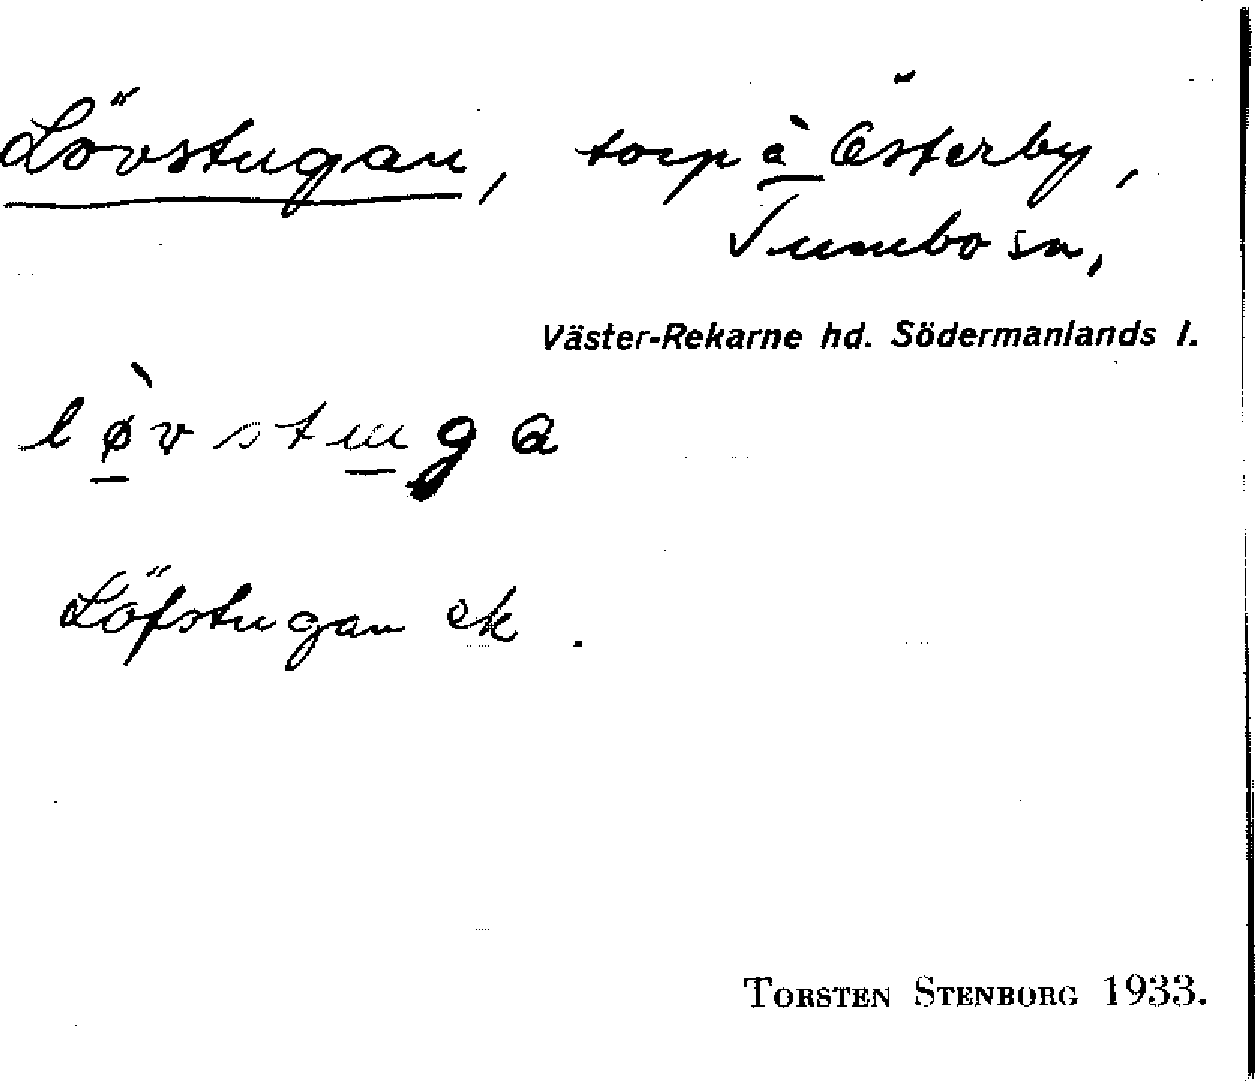 Lövstugan, torp å Österby,
Tumbo sn,
Väster-Rekarne hd. Södermanlands l.
lø̀vstuga
Löfstugan ek.
Torsten Stenborg 1933.